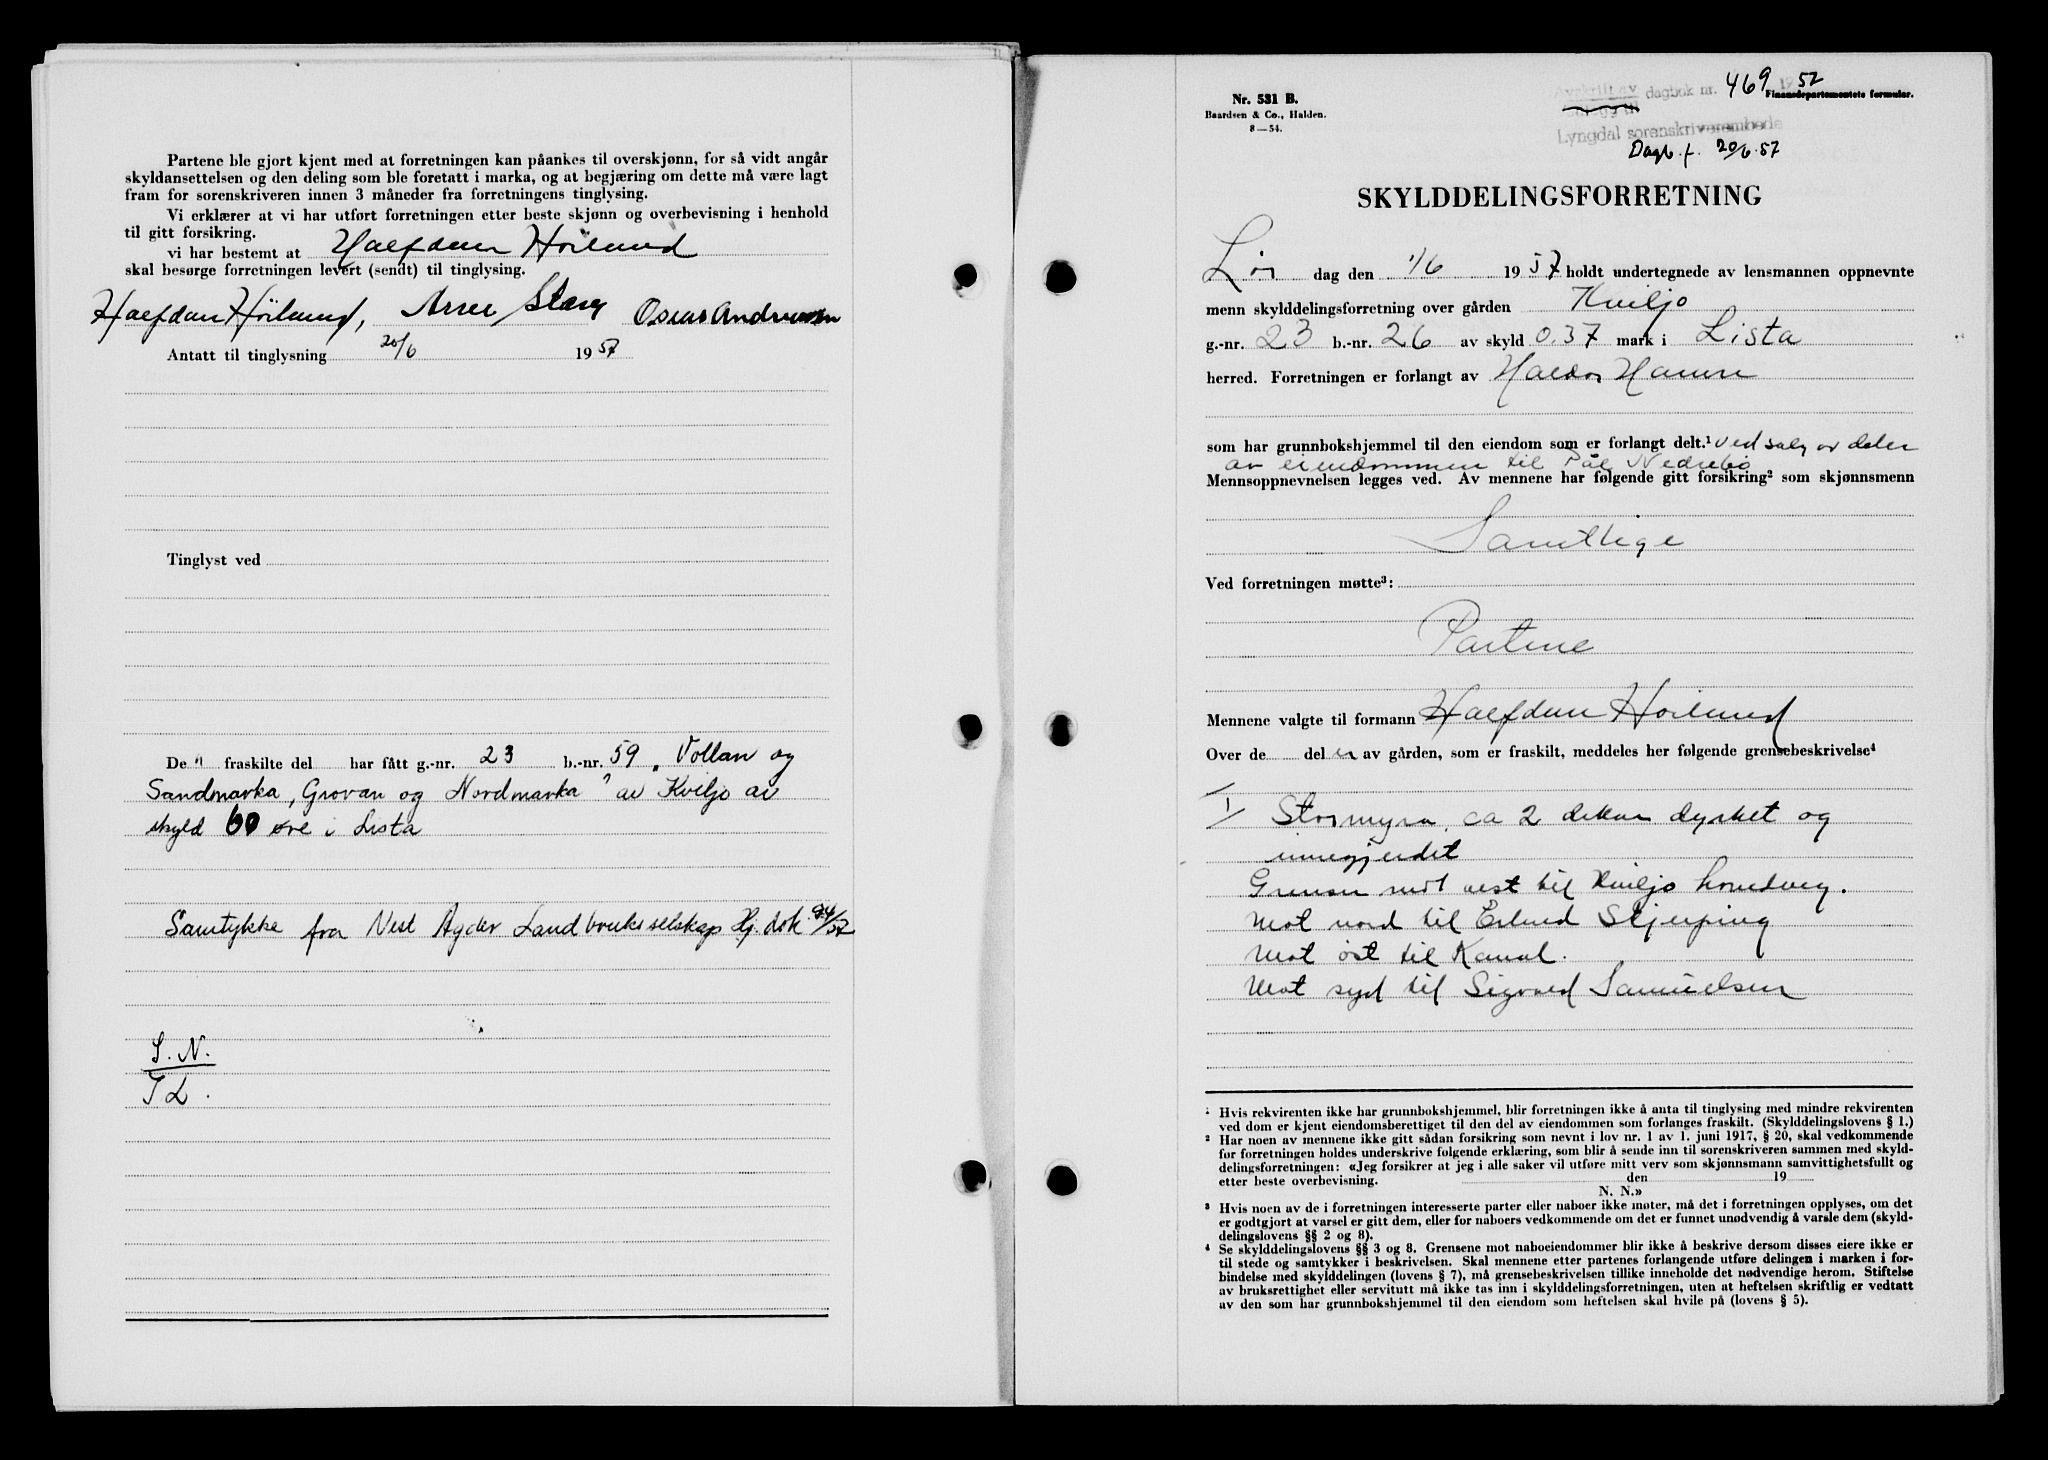 Partene ble gjort kjent med at forretningen kan påankes til overskjønn, for så vidt angår
skyldansettelsen og den deling som ble foretatt i marka, og at begjæring om dette må være lagt
fram for sorenskriveren innen 3 måneder fra forretningens tinglysing.
Vi erklærer at vi har utført forretningen etter beste skjønn og overbevisning i henhold
til gitt forsikring.
vi har bestemt at Halfdan Höilund
skal besørge forretningen levert (sendt) til tinglysing.
Halfdan Höilund, Oscar Andreassen
Antatt til tinglysning 20/6 1957
Tinglyst ved
De " fraskilte del har fått g.-nr. 23 b.-nr. 59 „ Vollan og
Sandmarka, Grovan og Nordmarka" av Kviljo av
skyld 60 øre i Lista
Samtykke fra Vest Agder Landbruksselskap Hj. dok 94/57
S. N.
T L.
Nr. 531 B.
Baardsen & Co., Halden.
8—54.
Avskrift av dagbok nr. 469 1957
Finansdepartementets formular.
Lyngdal sorenskriverembede
Dagb. f. 20/6.57
SKYLDDELINGSFORRETNING
Lör dag den 1/6 1957 holdt undertegnede av lensmannen oppnevnte
menn skylddelingsforretning over gården Kviljo
g.-nr. 23 b.-nr. 26 av skyld 0,37 mark i Lista
herred. Forretningen er forlangt av
som har grunnbokshjemmel til den eiendom som er forlangt delt.¹ ved salg av deler
av eiendommen til Pål Nedrebö
Mennsoppnevnelsen legges ved. Av mennene har følgende gitt forsikring² som skjønnsmenn
Samtlige
Ved forretningen møtte³:
Partene
Mennene valgte til formann Halfdan Höilund
Over de del er av gården, som er fraskilt, meddeles her følgende grensebeskrivelse⁴
I Stormyra, ca 2 dekar dyrket og
innegjerdet
Grenser mot vest til Kviljo hovedveg.
Mot nord til Erlend Stjerping
Mot öst til Kanal.
Mot syd til Sigvald Samuelsen
¹ Hvis rekvirenten ikke har grunnbokshjemmel, blir forretningen ikke å anta til tinglysing med mindre rekvirenten
ved dom er kjent eiendomsberettiget til den del av eiendommen som forlanges fraskilt. (Skylddelingslovens § 1.)
² Har noen av mennene ikke gitt sådan forsikring som nevnt i lov nr. 1 av 1. juni 1917, § 20, skal vedkommende
før forretningen holdes underskrive følgende erklæring, som blir å sende inn til sorenskriveren sammen med skyld-
delingsforretningen: «Jeg forsikrer at jeg i alle saker vil utføre mitt verv som skjønnsmann samvittighetsfullt og
etter beste overbevisning. den 19
N. N.»
³ Hvis noen av de i forretningen interesserte parter eller naboer ikke møter, må det i forretningen opplyses, om det
er godtgjort at varsel er gitt dem, eller for naboers vedkommende om det er funnet unødvendig å varsle dem (skyld-
delingslovens §§ 2 og 8).
⁴ Se skylddelingslovens §§ 3 og 8. Grensene mot naboeiendommer blir ikke å beskrive dersom disses eiere ikke er
til stede og samtykker i beskrivelsen. Skal mennene etter partenes forlangende utføre delingen i marken i for-
bindelse med skylddelingen (lovens § 7), må grensebeskrivelsen tillike inneholde det nødvendige herom. Stiftelse
av bruksrettighet eller servitutt må ikke tas inn i skylddelingsforretningen, uten at heftelsen skriftlig er vedtatt
av den som har grunnbokshjemmel til den eiendom som heftelsen skal hvile på (lovens § 5).